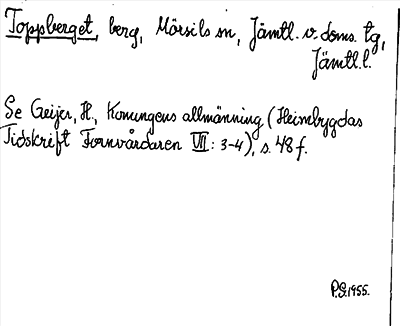 Toppberget, berg, Mörsils sn, Jämtl. v. doms. tg,
Jämtl.l.
Se Geijer, H., Konungens allmänning (Heimbygdas
Tidskrift Fornvårdaren VII: 3-4), s. 48 f.
P.G. 1955.